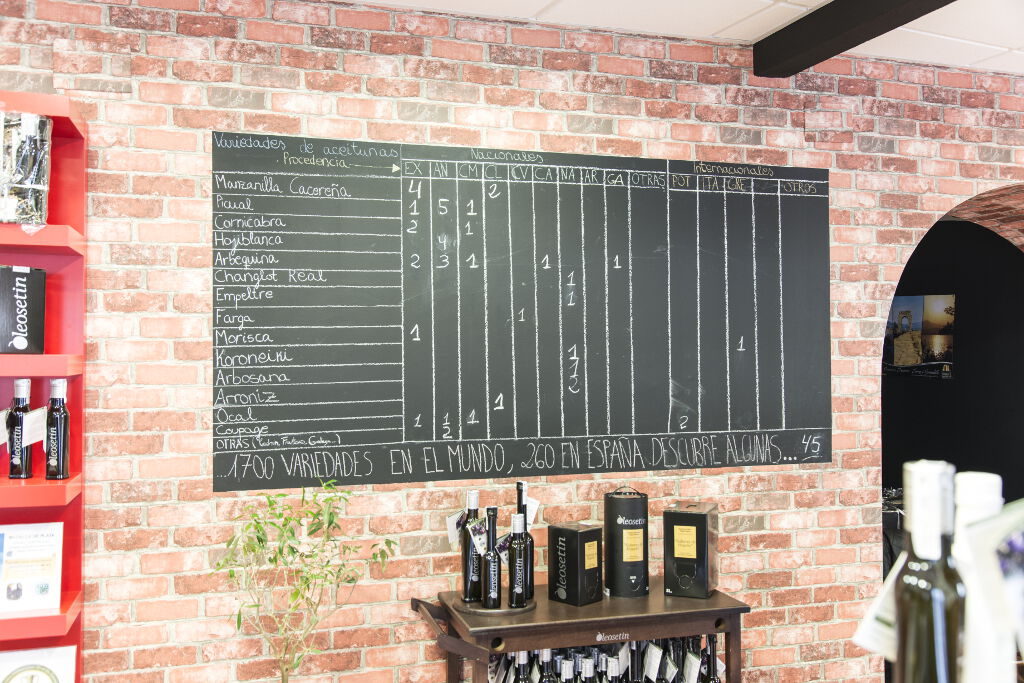 Variedades de aceitunas Nacionales Internacionales
Procedencia EX AN CM CL CV CA NA AR GA OTRAS POT ITA GRE OTROS
Manzanilla Cacereña 4 2
Picual 1 5 1
Cornicabra 2 1
Hojiblanca 4
Arbequina 2 3 1 1 1
Changlot Real 1
Empeltre 1
Farga 1
Morisca 1 1
Koroneiki 1
Arbosana 1
Arroniz 2
Ocal 1
Coupage 1 1 1 2
OTRAS 2
1700 VARIEDADES EN EL MUNDO, 260 EN ESPAÑA DESCUBRE ALGUNAS... 45
oleosetin
oleosetin
oleosetin
oleosetin
oleosetin
oleosetin
oleosetin
oleosetin
oleosetin